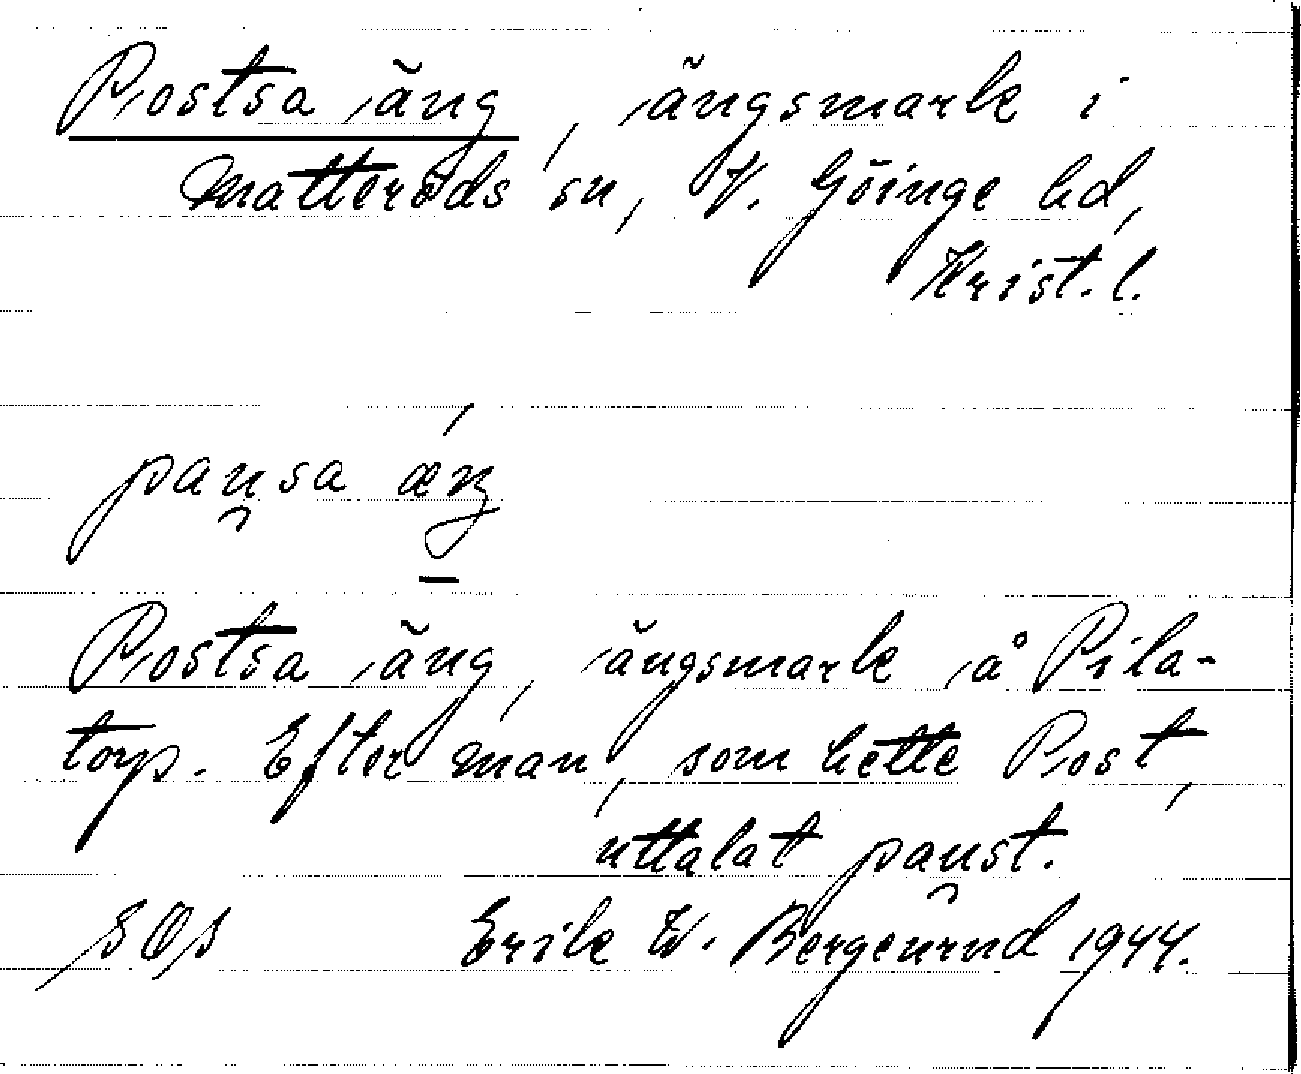 Postsa äng, ängsmark i
Matteröds sn, V. Göinge hd,
Krist. l.
pau̯sa æŋ́
Postsa äng, ängsmark å Pila-
torp. Efter man, som hette Post,
uttalat pau̯st.
SOS Erik W. Bergeurud 1944.